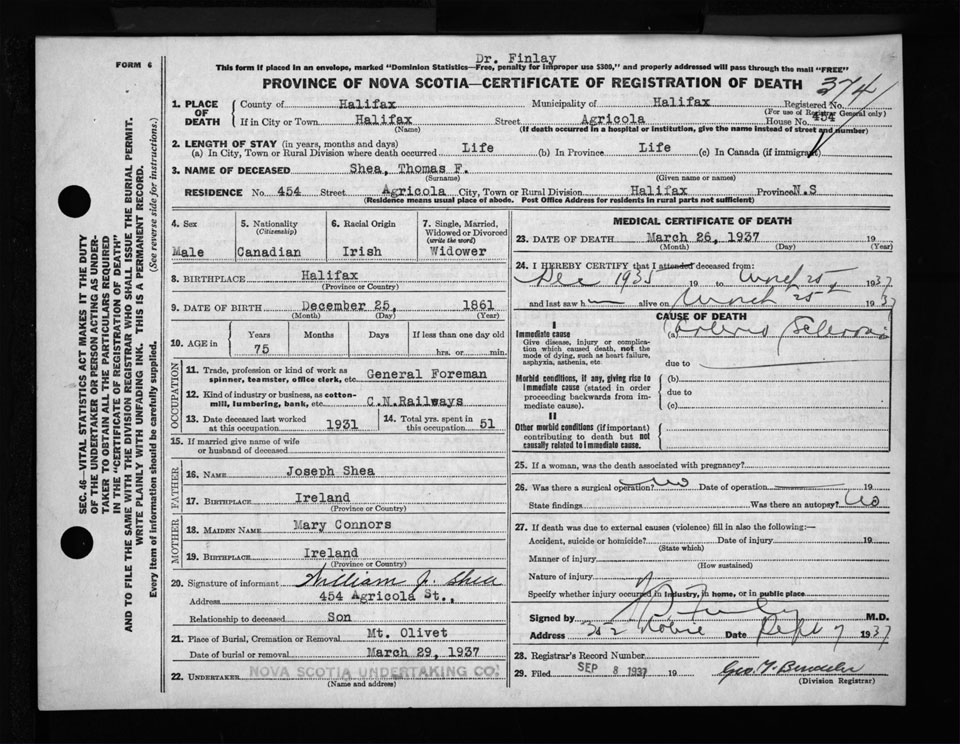 FORM 6
Dr. Finlay
This form if placed in an envelope, marked "Dominion Statistics—Free, penalty for improper use $300," and properly addressed will pass through the mail "FREE"
PROVINCE OF NOVA SCOTIA—CERTIFICATE OF REGISTRATION OF DEATH
374
1. PLACE OF DEATH
County of Halifax Municipality of Halifax Registered No.
(For use of Registrar General only)
If in City or Town Halifax Street Agricola House No. 454
(Name) (If death occurred in a hospital or institution, give the name instead of street and number)
2. LENGTH OF STAY (in years, months and days)
(a) In City, Town or Rural Division where death occurred Life (b) In Province Life (c) In Canada (if immigrant)
3. NAME OF DECEASED Shea, Thomas F.
(Surname) (Given name or names)
RESIDENCE No. 454 Street Agricola City, Town or Rural Division Halifax Province N.S
(Residence means usual place of abode. Post Office Address for residents in rural parts not sufficient)
4. Sex Male
5. Nationality (Citizenship) Canadian
6. Racial Origin Irish
7. Single, Married, Widowed or Divorced (write the word) Widower
8. BIRTHPLACE Halifax
(Province or Country)
9. DATE OF BIRTH December 25, 1861
(Month) (Day) (Year)
10. AGE in Years Months Days If less than one day old
75 hrs. or min.
OCCUPATION
11. Trade, profession or kind of work as spinner, teamster, office clerk, etc. General Foreman
12. Kind of industry or business, as cotton-mill, lumbering, bank, etc. C.N.Railways
13. Date deceased last worked at this occupation 1931
14. Total yrs. spent in this occupation 51
15. If married give name of wife or husband of deceased
FATHER
16. NAME Joseph Shea
17. BIRTHPLACE Ireland
(Province or Country)
MOTHER
18. MAIDEN NAME Mary Connors
19. BIRTHPLACE Ireland
(Province or Country)
20. Signature of informant William J. Shea
Address 454 Agricola St.,
Relationship to deceased Son
21. Place of Burial, Cremation or Removal Mt. Olivet
Date of burial or removal March 29, 1937
22. UNDERTAKER NOVA SCOTIA UNDERTAKING CO.
(Name and address)
MEDICAL CERTIFICATE OF DEATH
23. DATE OF DEATH March 26, 1937 19
(Month) (Day)
24. I HEREBY CERTIFY that I attended deceased from:
Dec 1935 19 to March 25 1937
and last saw h alive on March 25 1937
CAUSE OF DEATH
I
Immediate cause
Give disease, injury or complication which caused death, not the mode of dying, such as heart failure, asphyxia, asthenia, etc.
(a)
due to
Morbid conditions, if any, giving rise to immediate cause (stated in order proceeding backwards from immediate cause).
(b)
due to
(c)
II
Other morbid conditions (if important) contributing to death but not causally related to immediate cause.
25. If a woman, was the death associated with pregnancy?
26. Was there a surgical operation? No Date of operation 19
State findings Was there an autopsy? No
27. If death was due to external causes (violence) fill in also the following:—
Accident, suicide or homicide? Date of injury 19
(State which)
Manner of injury
(How sustained)
Nature of injury
Specify whether injury occurred in industry, in home, or in public place
Signed by Finlay M.D.
Address 352 Robie Date Sept 7 1937
28. Registrar's Record Number
29. Filed SEP 8 1937 19
(Division Registrar)
SEC. 46—VITAL STATISTICS ACT MAKES IT THE DUTY
OF THE UNDERTAKER OR PERSON ACTING AS UNDER-
TAKER TO OBTAIN ALL THE PARTICULARS REQUIRED
IN THE "CERTIFICATE OF REGISTRATION OF DEATH"
AND TO FILE THE SAME WITH THE DIVISION REGISTRAR WHO SHALL ISSUE THE BURIAL PERMIT.
WRITE PLAINLY WITH UNFADING INK. THIS IS A PERMANENT RECORD.
Every item of information should be carefully supplied. (See reverse side for instructions.)